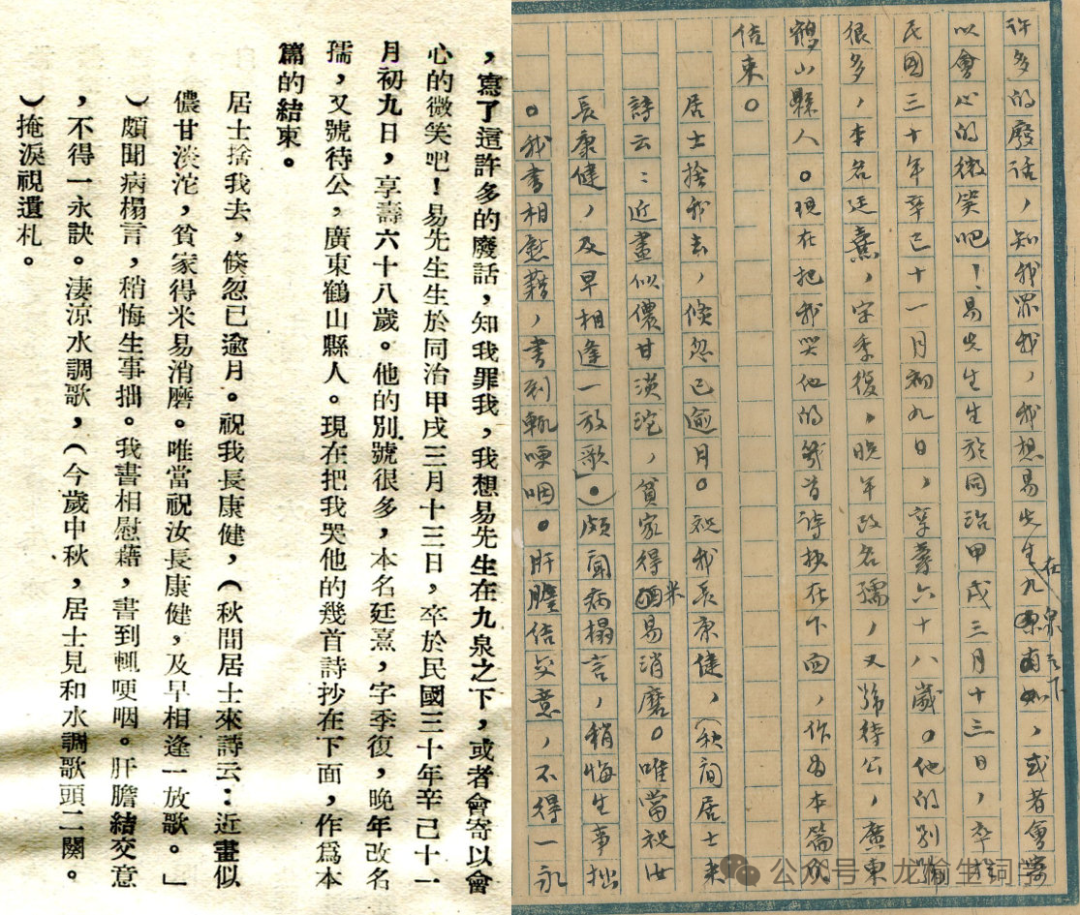 ，寫了這許多的廢話，知我罪我，我想易先生在九泉之下，或者會寄以會
心的微笑吧！易先生生於同治甲戌三月十三日，卒於民國三十年辛己十一
月初九日，享壽六十八歲。他的別號很多，本名廷熹，字季復，晚年改名
孺，又號待公，廣東鶴山縣人。現在把我哭他的幾首詩抄在下面，作爲本
篇的結束。
居士捨我去，倏忽已逾月。祝我長康健，（秋間居士來詩云：近畫似
儂甘淡沱，貧家得米易消磨。唯當祝汝長康健，及早相逢一放歌。」
）頗聞病榻言，稍悔生事拙。我書相慰藉，書到輒哽咽。肝膽結交意
，不得一永訣。淒涼水調歌，（今歲中秋，居士見和水調歌頭二闋。
）掩淚視遺札。
許多的廢話，知我罪我，我想易先生在九泉之下，或者會寄
以會心的微笑吧！易先生生於同治甲戌三月十三日，卒於
民國三十年辛己十一月初九日，享壽六十八歲。他的別號
很多，本名廷熹，字季復，晚年改名孺，又號待公，廣東
鶴山縣人。現在把我哭他的幾首詩抄在下面，作為本篇的
結束。
居士捨我去，倏忽已逾月。祝我長康健，（秋間居士來
詩云：近畫似儂甘淡沱，貧家得米易消磨。唯當祝汝
長康健，及早相逢一放歌。）頗聞病榻言，稍悔生事拙
。我書相慰藉，書到輒哽咽。肝膽結交意，不得一永
公众号·龙榆生词学